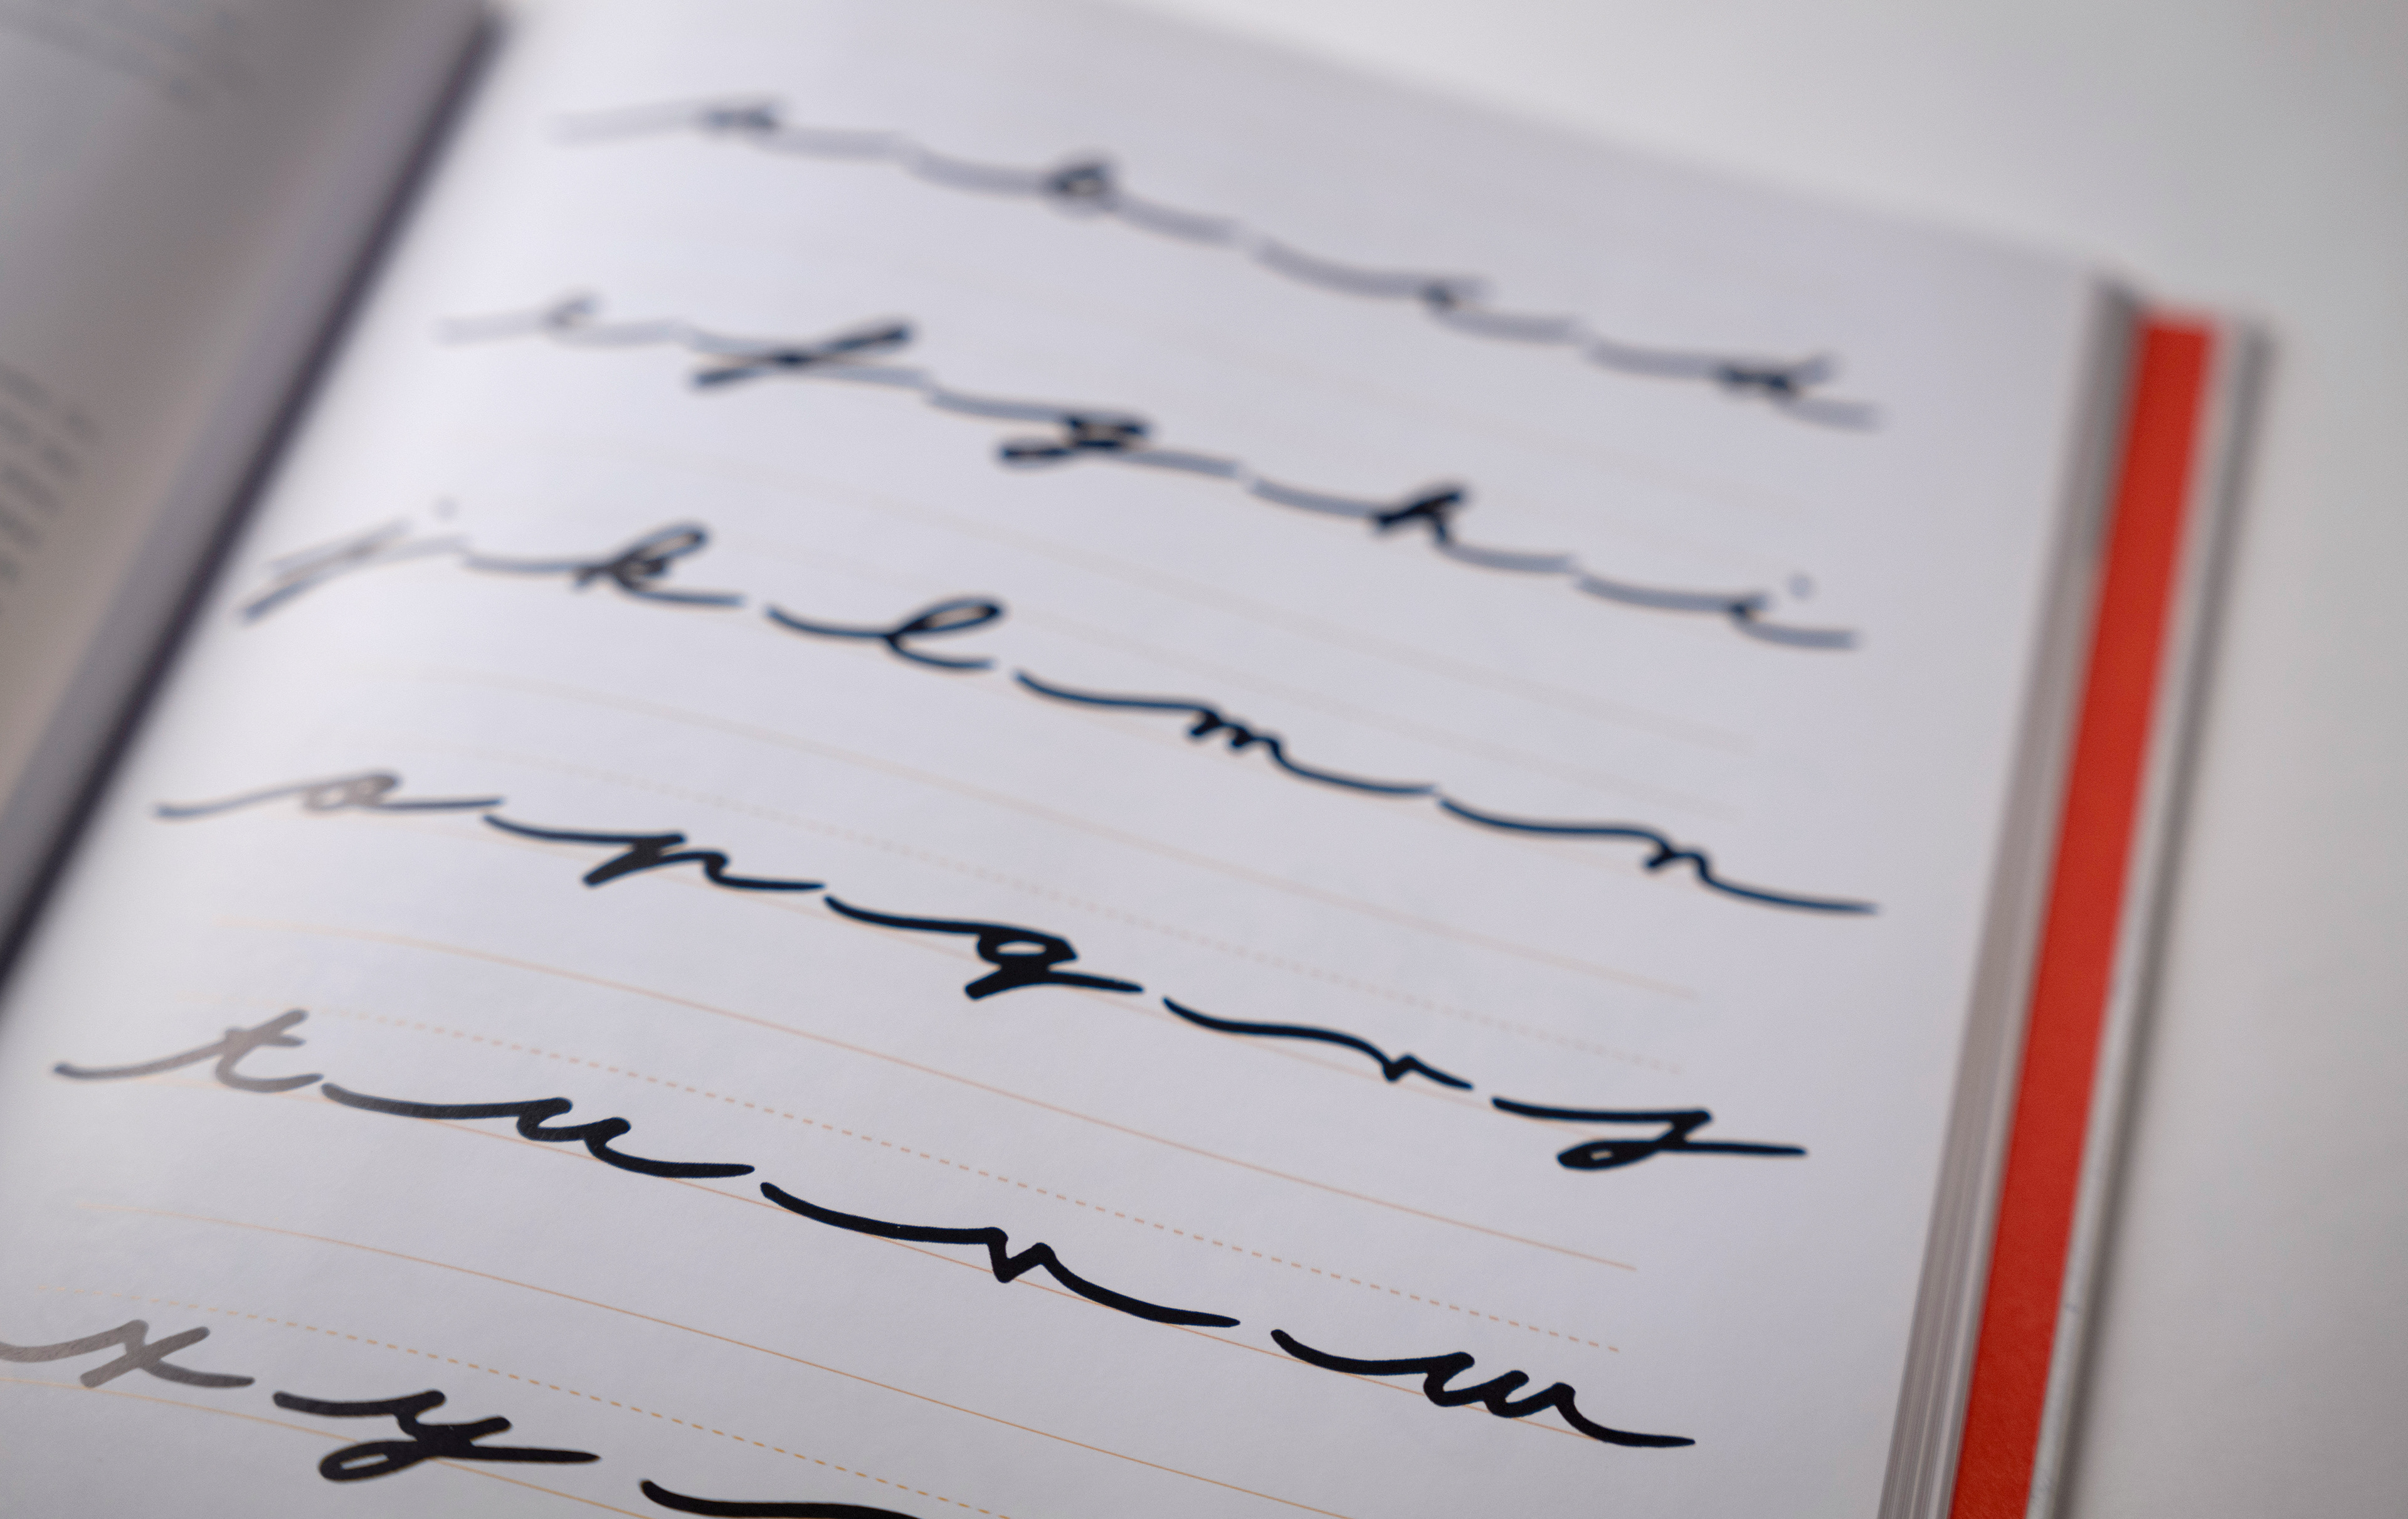 a b c d
e f g h i
j k l m n
o p q r s
t u v w
x y